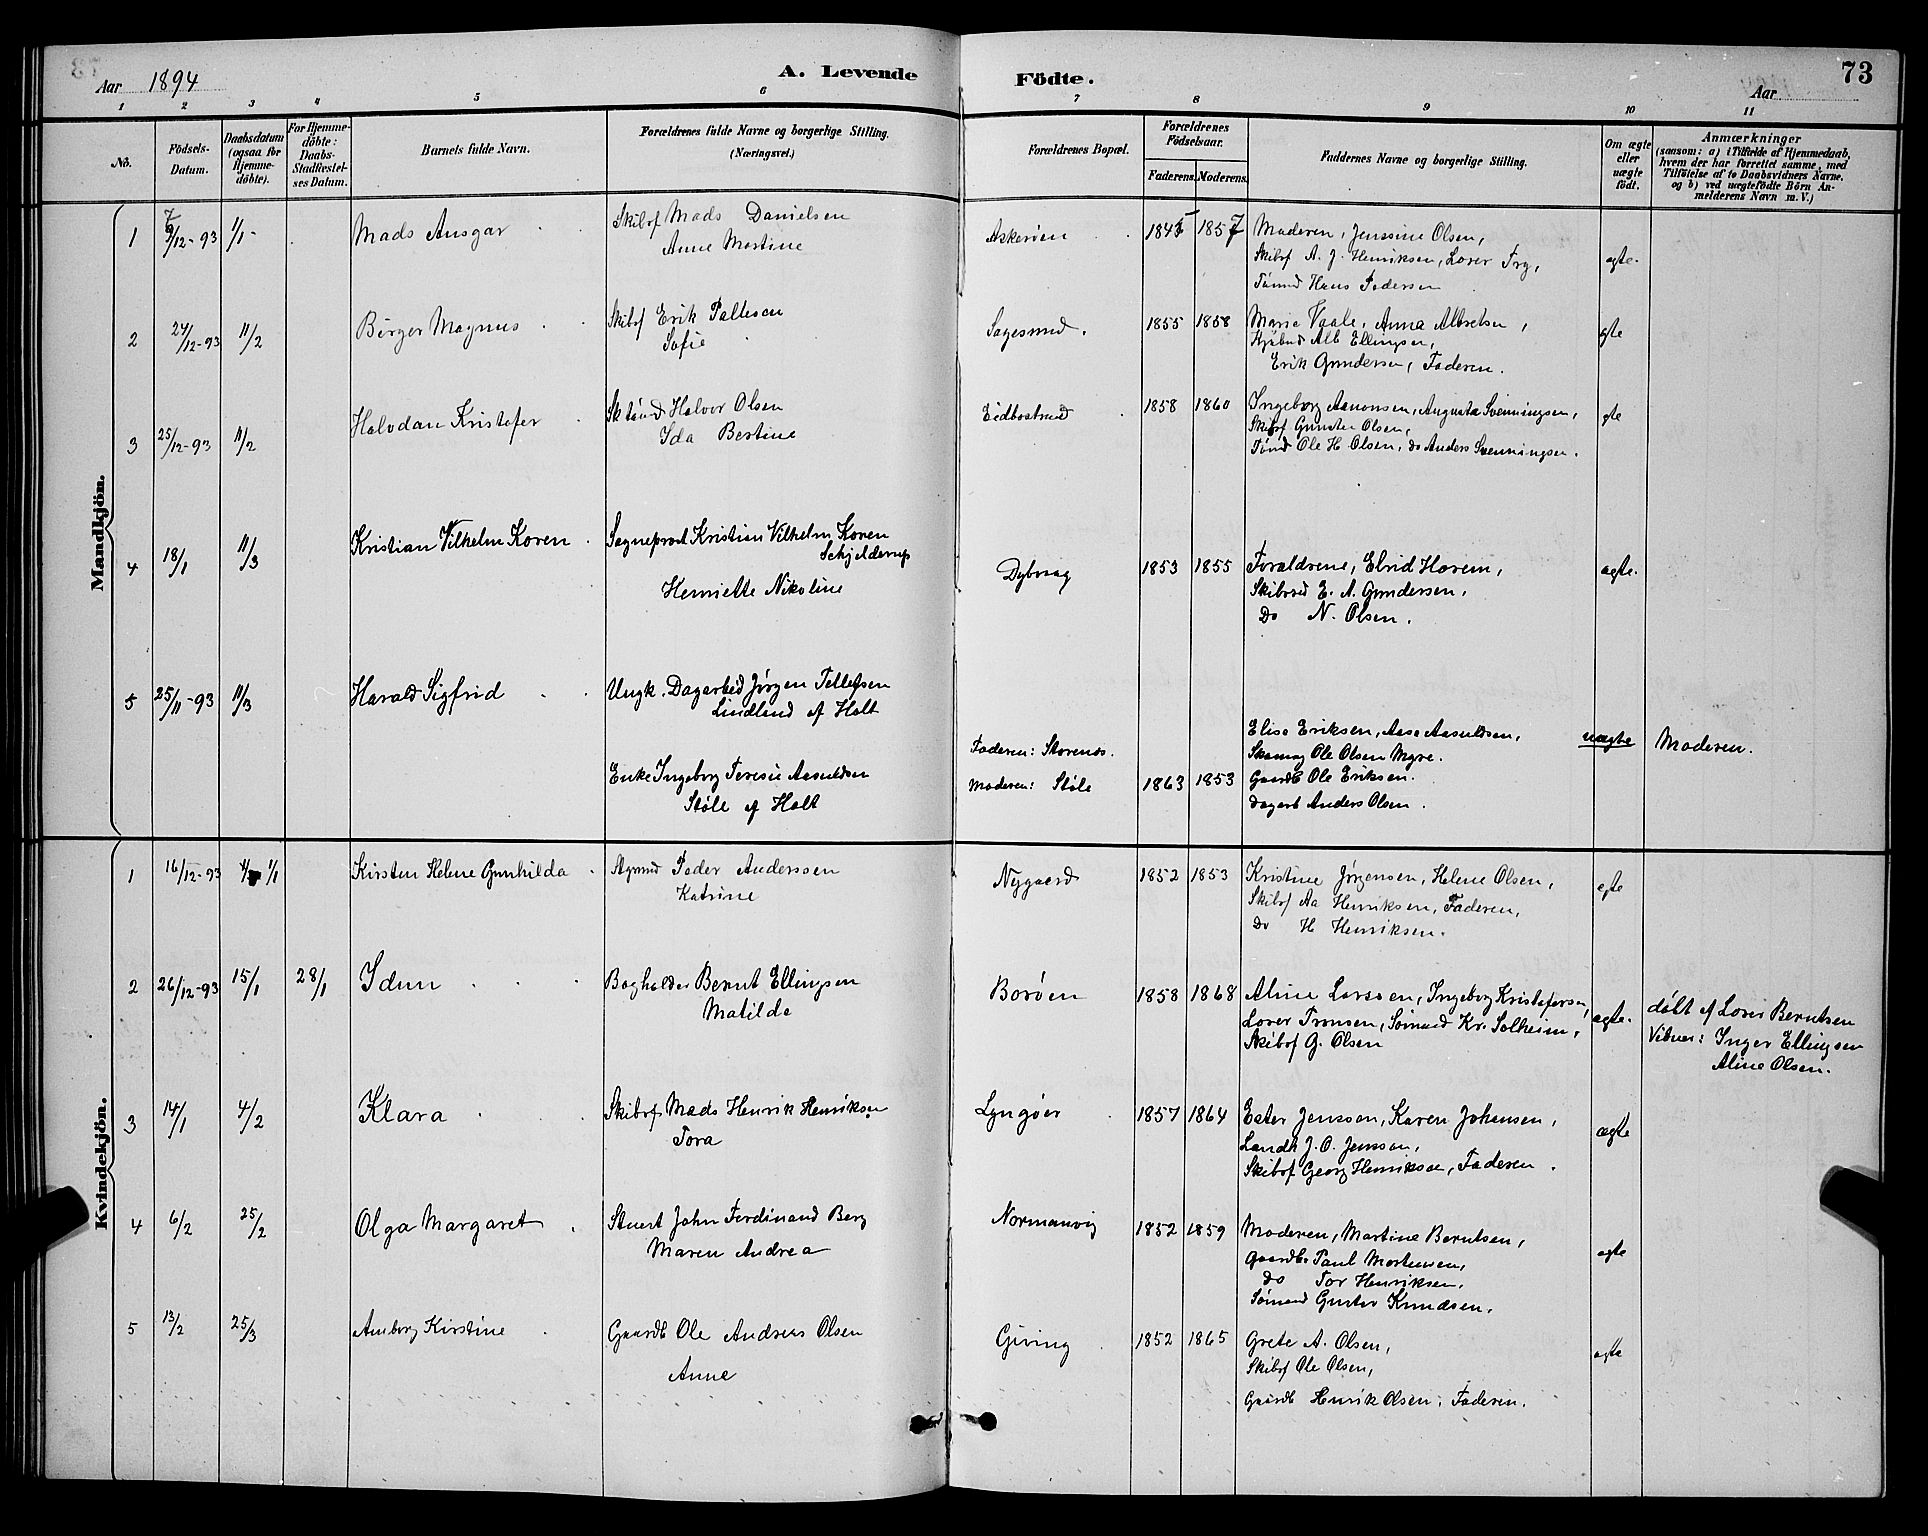 Aar 1894
A. Levende Födte.
73
Aar
1 2 3 4 5 6 7 8 9 10 11
No.
Födsels-Datum.
Daabsdatum (ogsaa for Hjemmedöbte).
For Hjemmedöbte: Daabs-Stadfestelses Datum.
Barnets fulde Navn.
Forældrenes fulde Navne og borgerlige Stilling.
(Næringsvei.)
Forældrenes Bopæl.
Forældrenes Födselsaar.
Faderens. Moderens.
Faddernes Navne og borgerlige Stilling.
Om ægte eller uægte födt.
Anmærkninger
(saasom: a) i Tilfælde af Hjemmedaab, hvem der har forrettet samme, med Tilföielse af to Daabsvidners Navne, og b) ved uægtefödte Börn Anmelderens Navn m. V.)
Mandkjön.
1 /12-93 1/1 - Mads Ansgar Skibsf Mads Danielsen
Anne Martine
Askerøen 1845 1857 Moderen, Jenssine Olsen,
Skibsf A. J. Henriksen, Lover Try,
Tømmd Hans Pedersen
ægte.
2 27/12-93 11/2 Børger Magnus Skibsf Erik Pallesen
Sofie
Sagesund. 1855 1858 Marie Vaale, Anna Albretsen,
Alb Ellingsen,
Erik Gundersen, Faderen.
ægte
3 25/12-93 11/2 Halvdan Kristofer Halvor Olsen
Ida Bertine
Eidbostrand 1858 1860 Ingeborg Aanonsen, Augusta Svenningsen,
Skibsf Gunster Olsen,
Tømd Ole H. Olsen, do Anders Svenningsen.
ægte
4 18/1 11/3 Kristian Vilhelm Koren Sogneprest Kristian Vilhelm Koren
Schjelderup
Henriette Nikoline
Dybvaag 1853 1855 Forældrene, Elvid Havem,
E. A. Gundersen,
Do N. Olsen.
ægte.
5 25/11-93 11/3 Harald Sigfrid Ungk. Dagarbeid Jørgen Tellefsen
Lindland af Holt
Enke Ingeborg Teresie Aasuldsen
Støle af Holt
Faderen: Storenæs.
Moderen: Støle
1863 1853 Elise Eriksen, Aase Aasuldsen,
Skomag Ole Olsen Myre.
Gaardb Ole Eriksen.
Dagarb Anders Olsen.
uægte Moderen.
Kvindekjön.
1 16/12-93 1/1 Kirsten Helene Gunhilda Peder Anderssen
Katrine
Nygaard 1852 1853 Kristine Jørgensen, Helene Olsen,
Skibsf Aa Henriksen, Faderen,
Do H Henriksen.
ægte
2 26/12-93 15/1 28/1 Idun Bogholder Bernt Ellingsen
Matilde
Borøen 1858 1868 Aline Larssen, Ingeborg Kristofersen,
Lover Tronsen, Sømand Kr. Solheim,
Skibsf G. Olsen
ægte. døbt af Lovis Berntsen
Vitner: Inger Ellingsen
Aline Olsen.
3 14/1 4/2 Klara Skibsf Mads Henrik Henriksen
Tora
Lyngøer 1857 1864 Ester Jensson, Karen Johansen,
Landh J. O. Jensson,
Skibsf Georg Henriksen, Faderen.
ægte
4 6/2 25/2 Olga Margaret Stuert John Ferdinand Berg
Maren Andrea
Normanvig 1852 1859 Moderen, Martine Berntsen,
Gaardb. Paul Mortensen,
do Tor Henriksen,
Sømand Gustav Knudsen.
ægte
5 13/2 25/3 Amborg Kirstine Gaardb Ole Andreas Olsen
Anne
Giving 1852 1865 Grete A. Olsen,
Skibsf Ole Olsen,
Gaardb Henrik Olsen, Faderen.
ægte